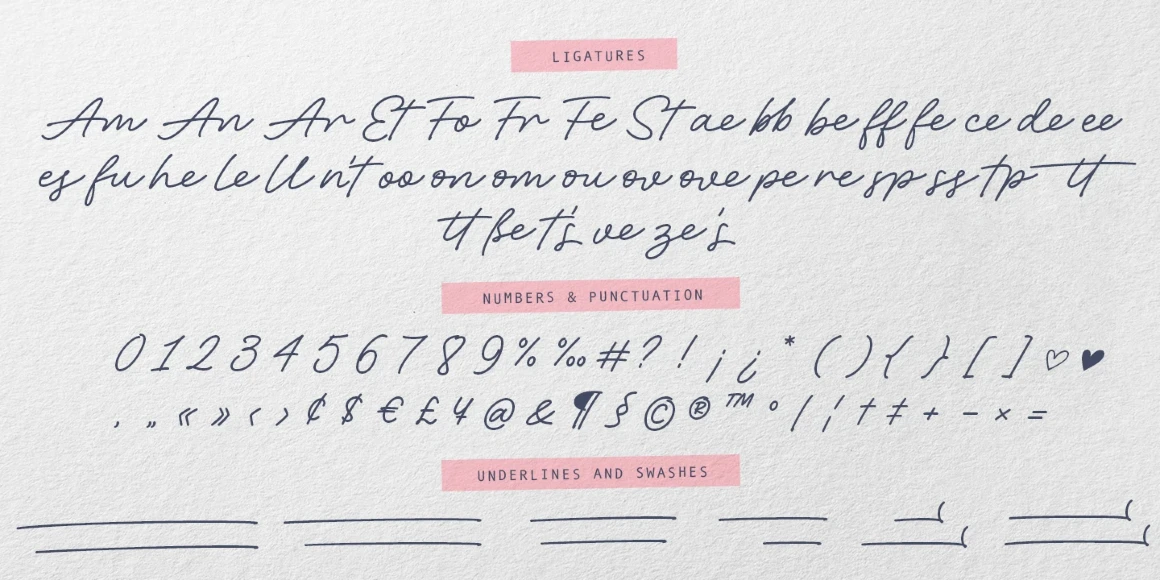 LIGATURES
Am An Ar Et Fo Fr Fe St ae bb be ff fe ce de ee
es fu he le ll n't oo on om ou ov ove pe re sp ss tp tt
tt Be t's ve ze 's
NUMBERS & PUNCTUATION
0 1 2 3 4 5 6 7 8 9 % ‰ # ? ! ¡ ¿ * ( ) { } [ ] ♡ ♥
, „ « » ‹ › ¢ $ € £ ¥ @ & ¶ § © ® ™ ° / ¦ † ‡ + − × =
UNDERLINES AND SWASHES